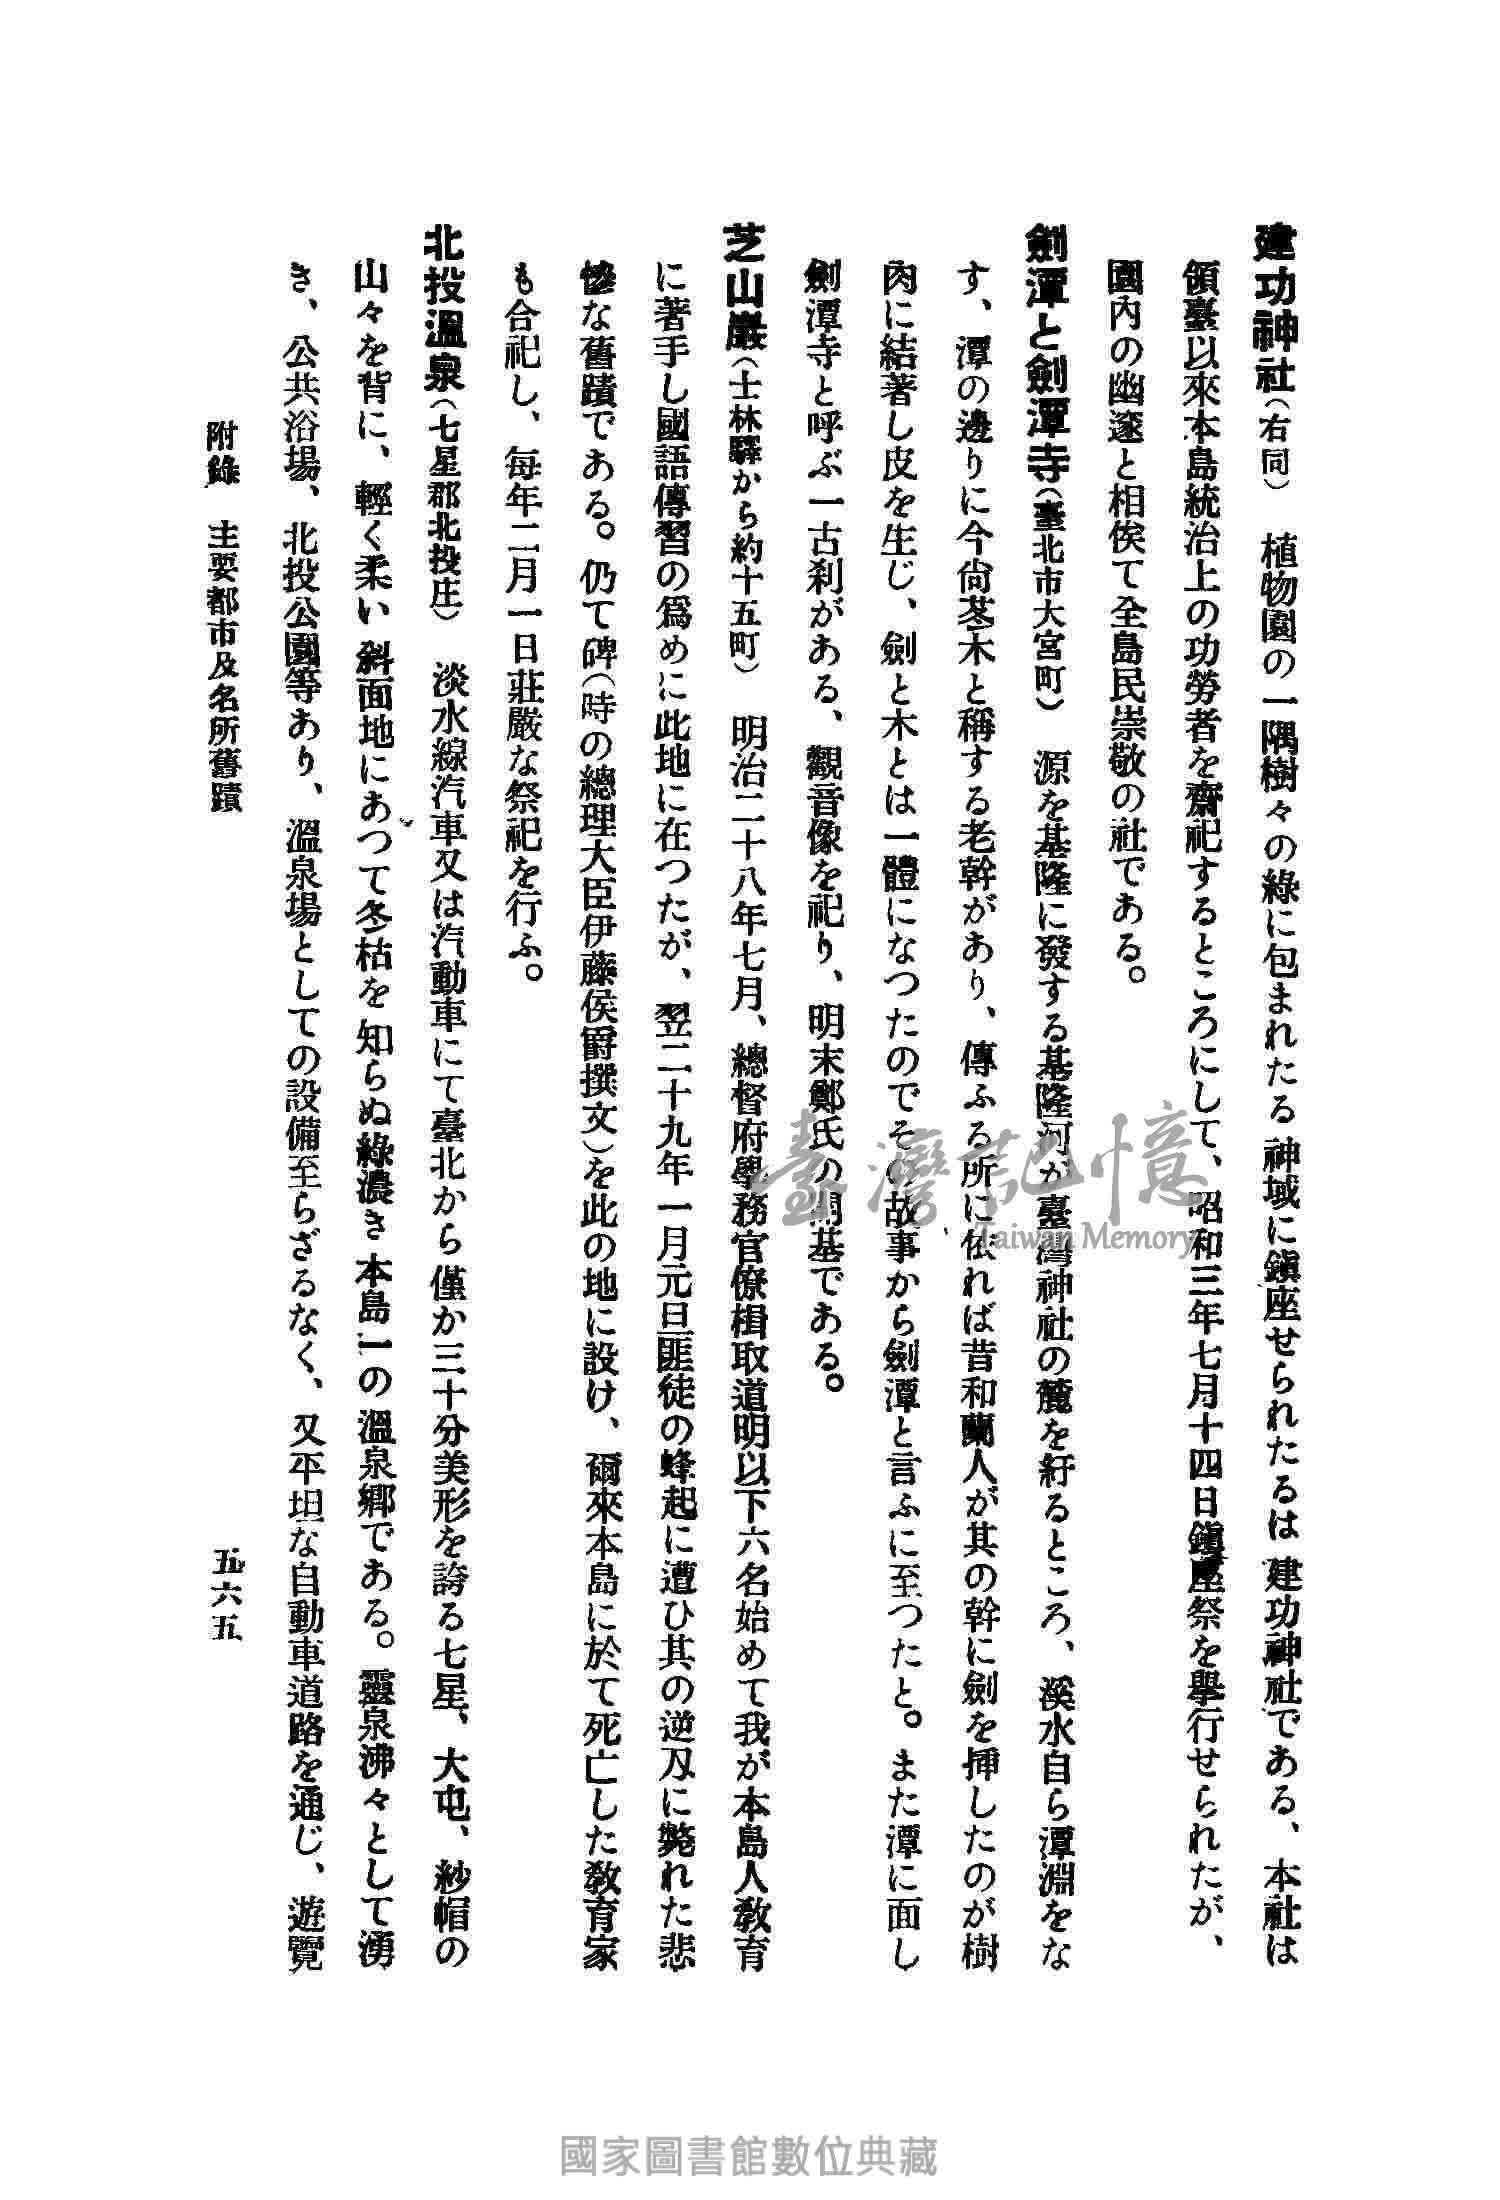 建功神社（右同）　植物園の一隅樹々の綠に包まれたる神域に鎭座せられたるは建功神社である、本社は
領臺以來本島統治上の功勞者を齋祀するところにして、昭和三年七月十四日鎭座祭を擧行せられたが、
園內の幽邃と相俟て全島民崇敬の社である。
劍潭と劍潭寺（臺北市大宮町）　源を基隆に發する基隆河が臺灣神社の麓を紆るところ、溪水自ら潭淵をな
す、潭の邊りに今尙茎木と稱する老幹があり、傳ふる所に依れば昔和蘭人が其の幹に劍を挿したのが樹
內に結著し皮を生じ、劍と木とは一體になつたのでその故事から劍潭と言ふに至つたと。また潭に面し
劍潭寺と呼ぶ一古刹がある、觀音像を祀り、明末鄭氏の開基である。
芝山巖（士林驛から約十五町）　明治二十八年七月、總督府學務官僚楫取道明以下六名始めて我が本島人敎育
に著手し國語傳習の爲めに此地に在つたが、翌二十九年一月元旦匪徒の蜂起に遭ひ其の逆刀に斃れた悲
慘な舊蹟である。仍て碑（時の總理大臣伊藤侯爵撰文）を此の地に設け、爾來本島に於て死亡した敎育家
も合祀し、每年二月一日莊嚴な祭祀を行ふ。
北投溫泉（七星郡北投庄）　淡水線汽車又は汽動車にて臺北から僅か三十分美形を誇る七星、大屯、紗帽の
山々を背に、輕く柔い斜面地にあつて冬枯を知らぬ綠濃き本島一の溫泉鄉である。靈泉沸々として湧
き、公共浴場、北投公園等あり、溫泉場としての設備至らざるなく、又平坦な自動車道路を通じ、遊覽
附錄　主要都市及名所舊蹟
五六五
臺灣記憶
Taiwan Memory
國家圖書館數位典藏